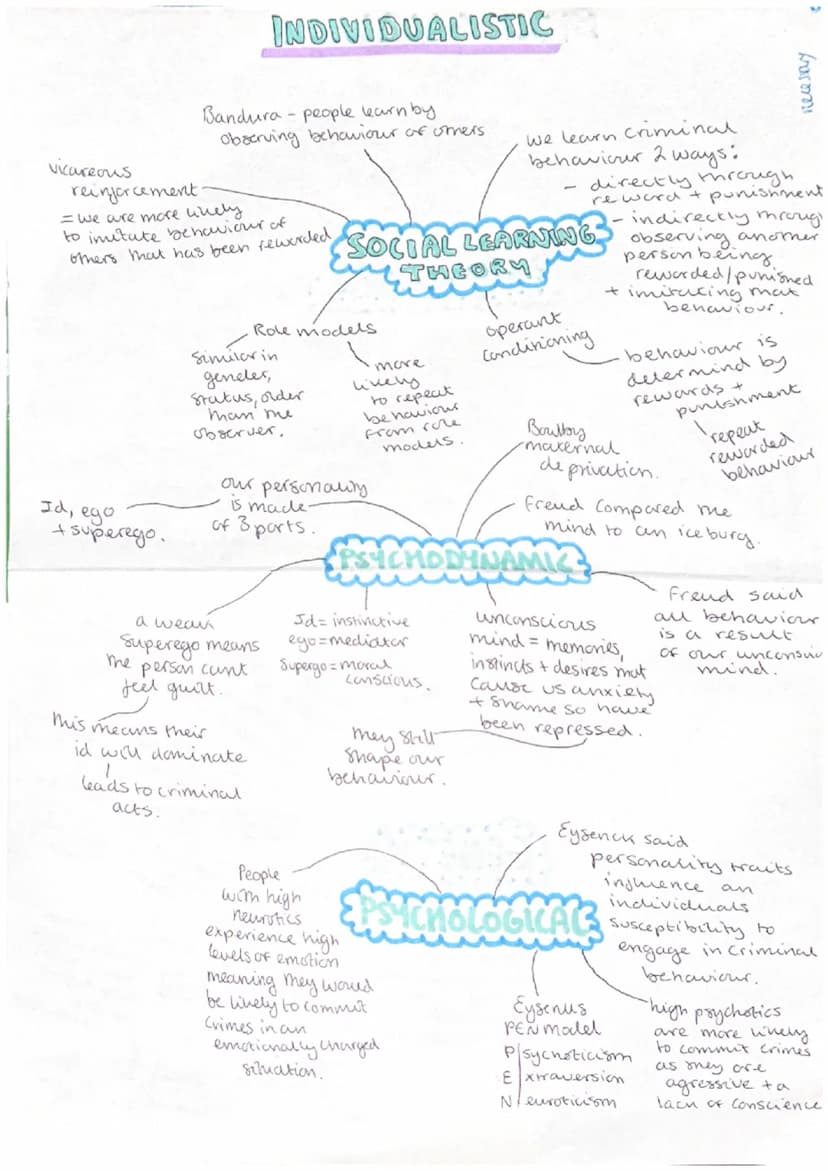 INDIVIDUALISTIC
necessary
Bandura - people learn by
observing behaviour of others
we learn criminal
behaviour 2 ways:
- directly through
reward + punishment
- indirectly throug
observing another
person being
rewarded/punished
+ imitating that
behaviour.
vicareous
reinforcement
= we are more likely
to imitate behaviour of
others that has been rewarded
SOCIAL LEARNING
THEORY
Role models
similar in
gender,
status, older
than the
observer.
more
likely
to repeat
behaviour
from role
models.
operant
conditioning
behaviour is
determind by
rewards +
punishment
repeat
rewarded
behaviour
Boulby
maternal
deprivation.
our personality
is made
of 3 parts.
Id, ego
+ superego.
Freud compared the
mind to an iceburg.
PSYCHODYNAMIC
a weak
superego means
the person cant
feel guilt.
this means their
id will dominate
leads to criminal
acts.
Id = instinctive
ego = mediator
Supergo = moral
conscious.
unconscious
mind = memories,
instincts + desires that
cause us anxiety
+ shame so have
been repressed.
they still
shape our
behaviour.
Freud said
all behaviour
is a result
of our unconsciu
mind.
PSYCHOLOGICAL
People
with high
neurotics
experience high
levels of emotion
meaning they would
be likely to commit
crimes in an
emotionally charged
situation.
Eysenck said
personality traits
influence an
individuals
susceptibility to
engage in criminal
behaviour.
Eysenus
PEN model
P|sychoticism
E|xtraversion
N|euroticism
high psychotics
are more likely
to commit crimes
as they are
agressive + a
lack of conscience